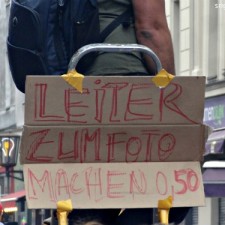 LEITER
ZUM FOTO
MACHEN 0,50